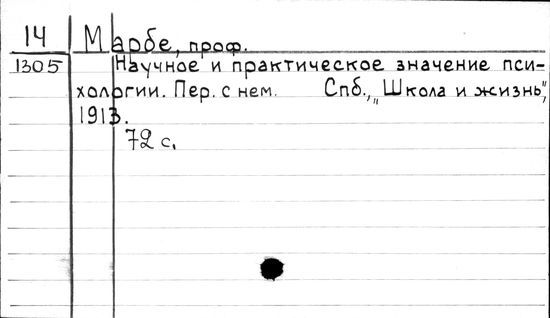 14 Марбе, проф.
1305 Научное и практическое значение пси-
хологии. Пер. с нем. Спб., „Школа и жизнь",
1913.
72 с.